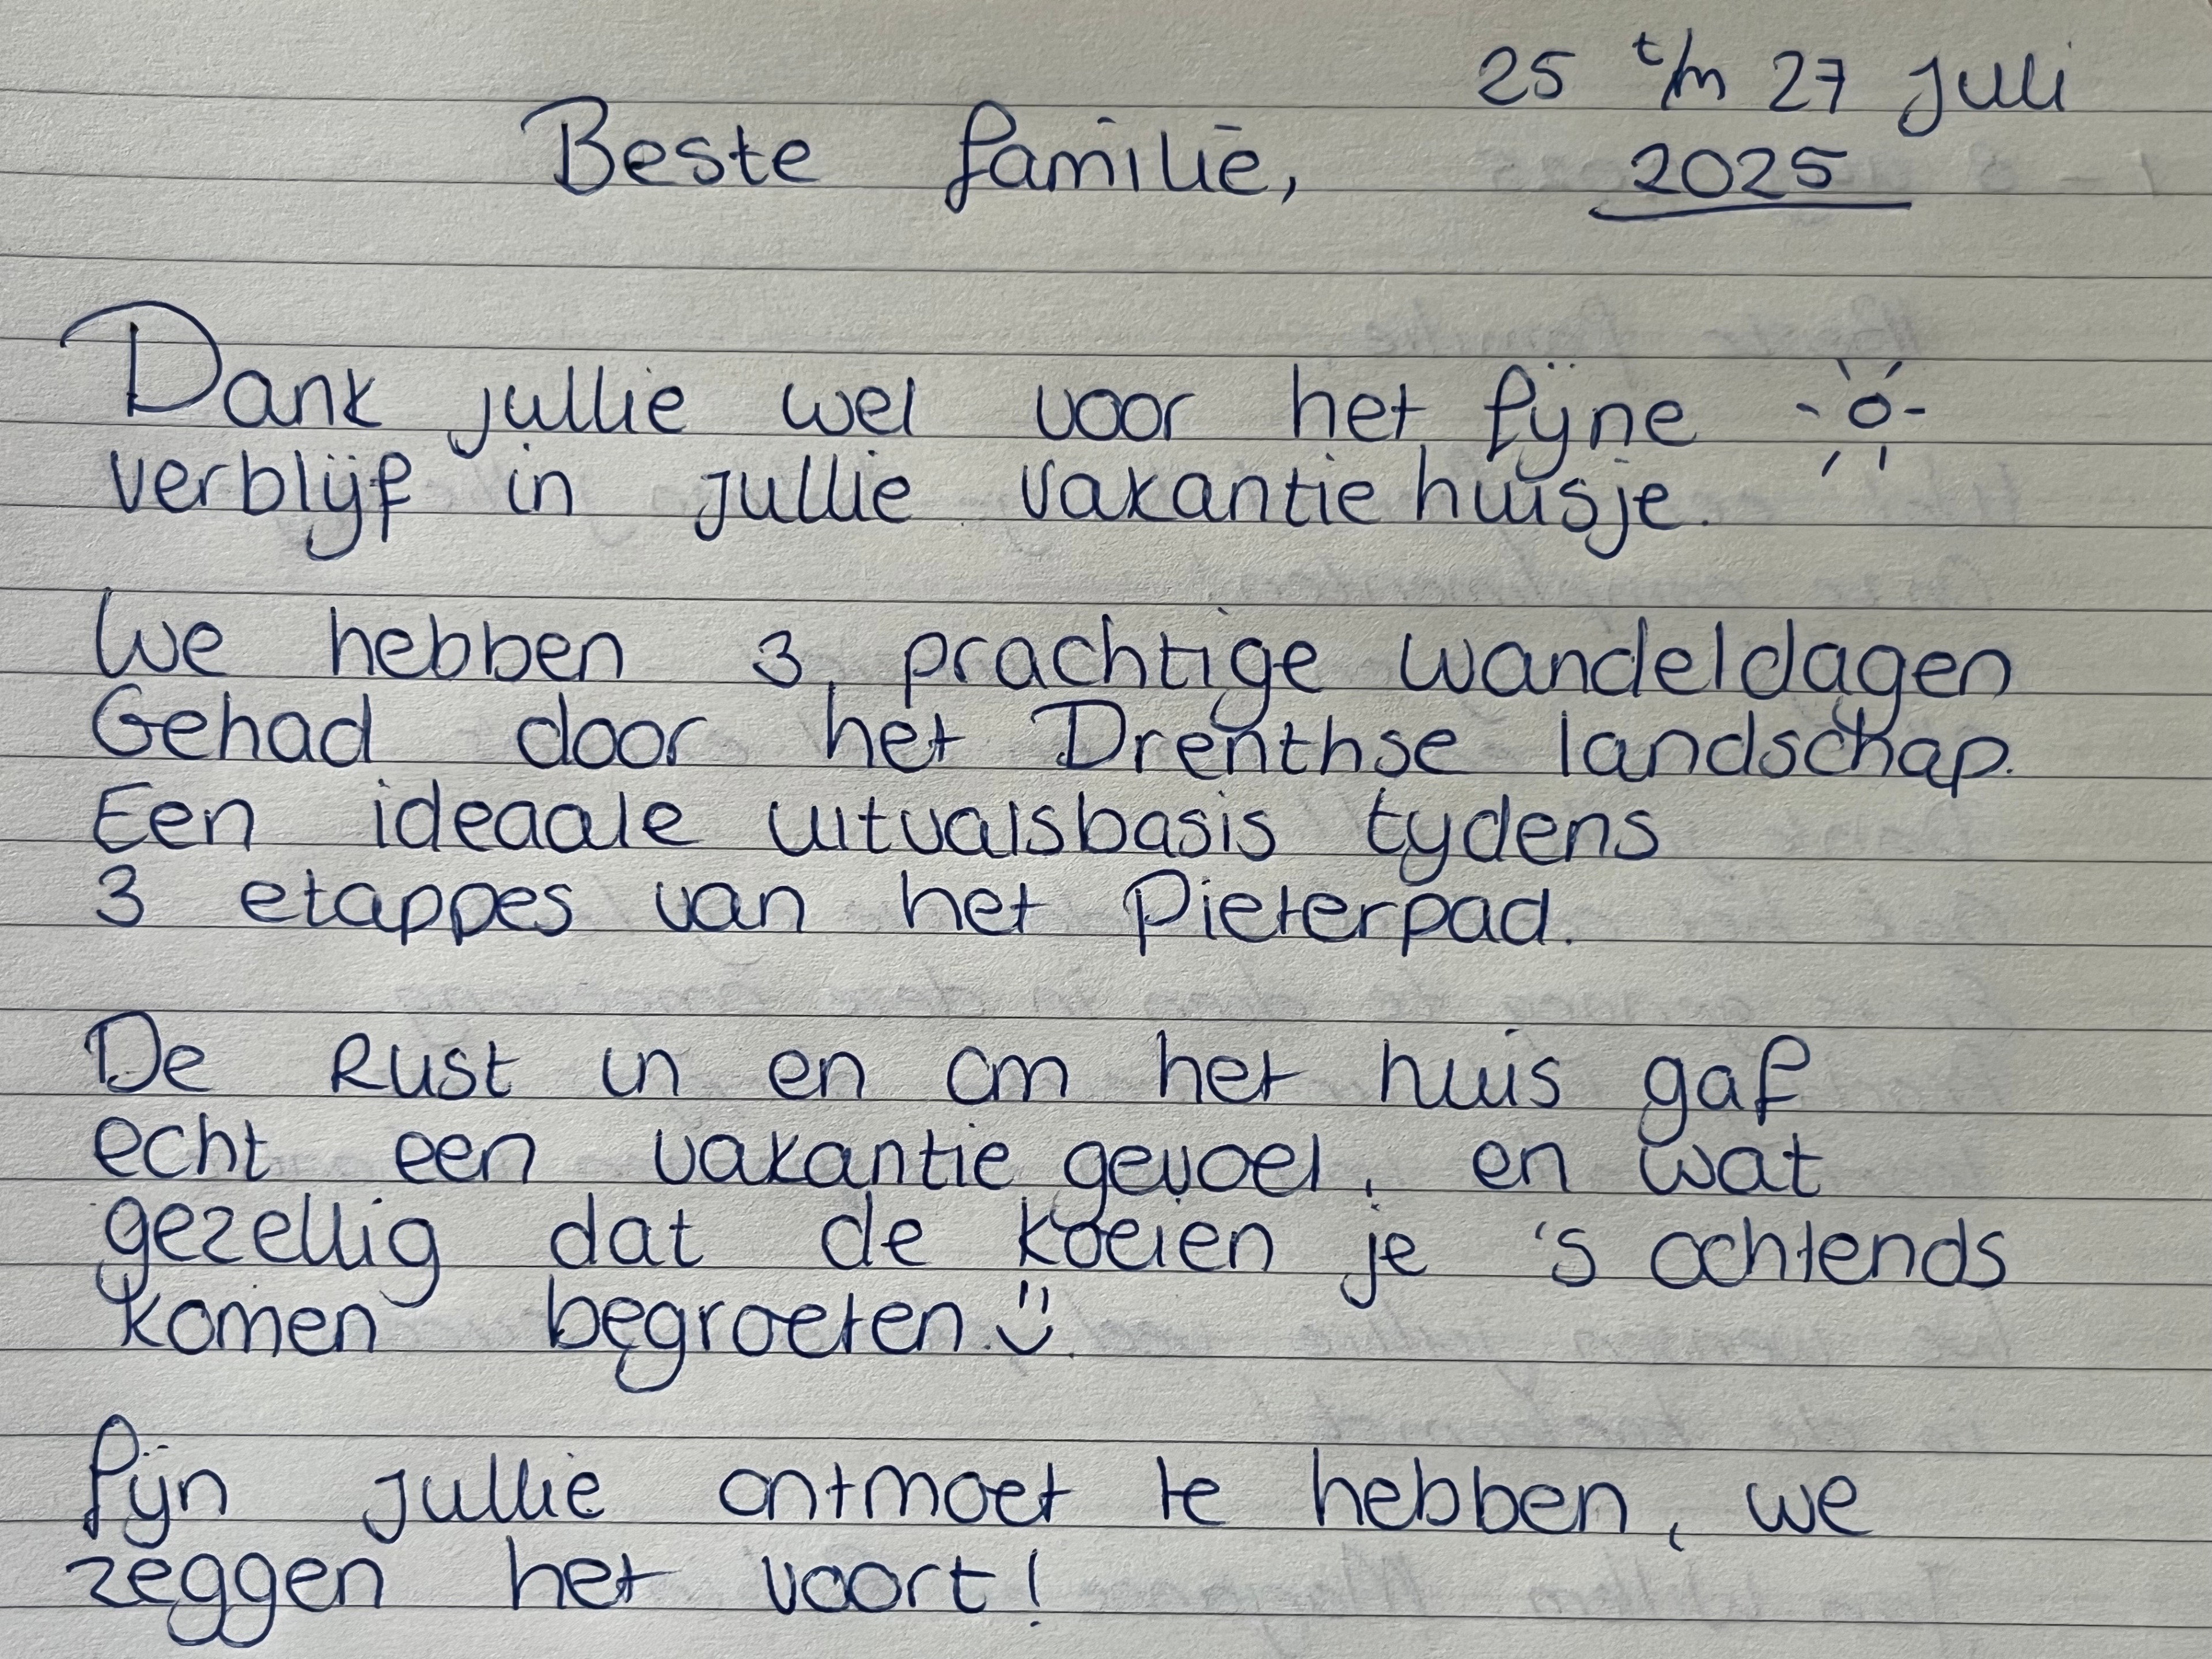 25 t/m 27 juli
Beste familie, 2025
Dank jullie wel voor het fijne
verblijf in jullie vakantiehuisje.
We hebben 3 prachtige wandeldagen
Gehad door het Drenthse landschap.
Een ideaale uitvalsbasis tijdens
3 etappes van het Pieterpad.
De Rust in en om het huis gaf
echt een vakantie gevoel, en wat
gezellig dat de koeien je 's ochtends
komen begroeten.
fijn jullie ontmoet te hebben, we
zeggen het voort!